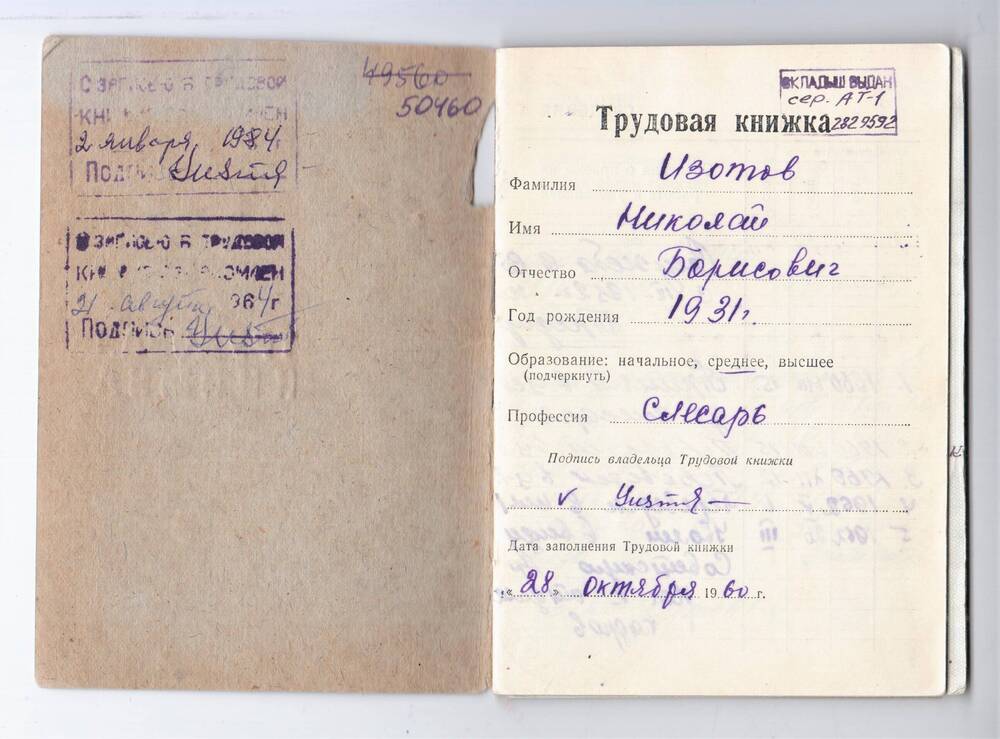 С ЗАПИСЬЮ В ТРУДОВОЙ
2 января 1984г
49560
50460
С ЗАПИСЬЮ В ТРУДОВОЙ
21 августа 1964г
ВКЛАДЫШ ВЫДАН
сер. АТ-1
2829592
Трудовая книжка
Фамилия Изотов
Имя Николай
Отчество Борисович
Год рождения 1931г.
Образование: начальное, среднее, высшее
(подчеркнуть)
Профессия Слесарь
Подпись владельца Трудовой книжки
Дата заполнения Трудовой книжки
«28» октября 1960 г.